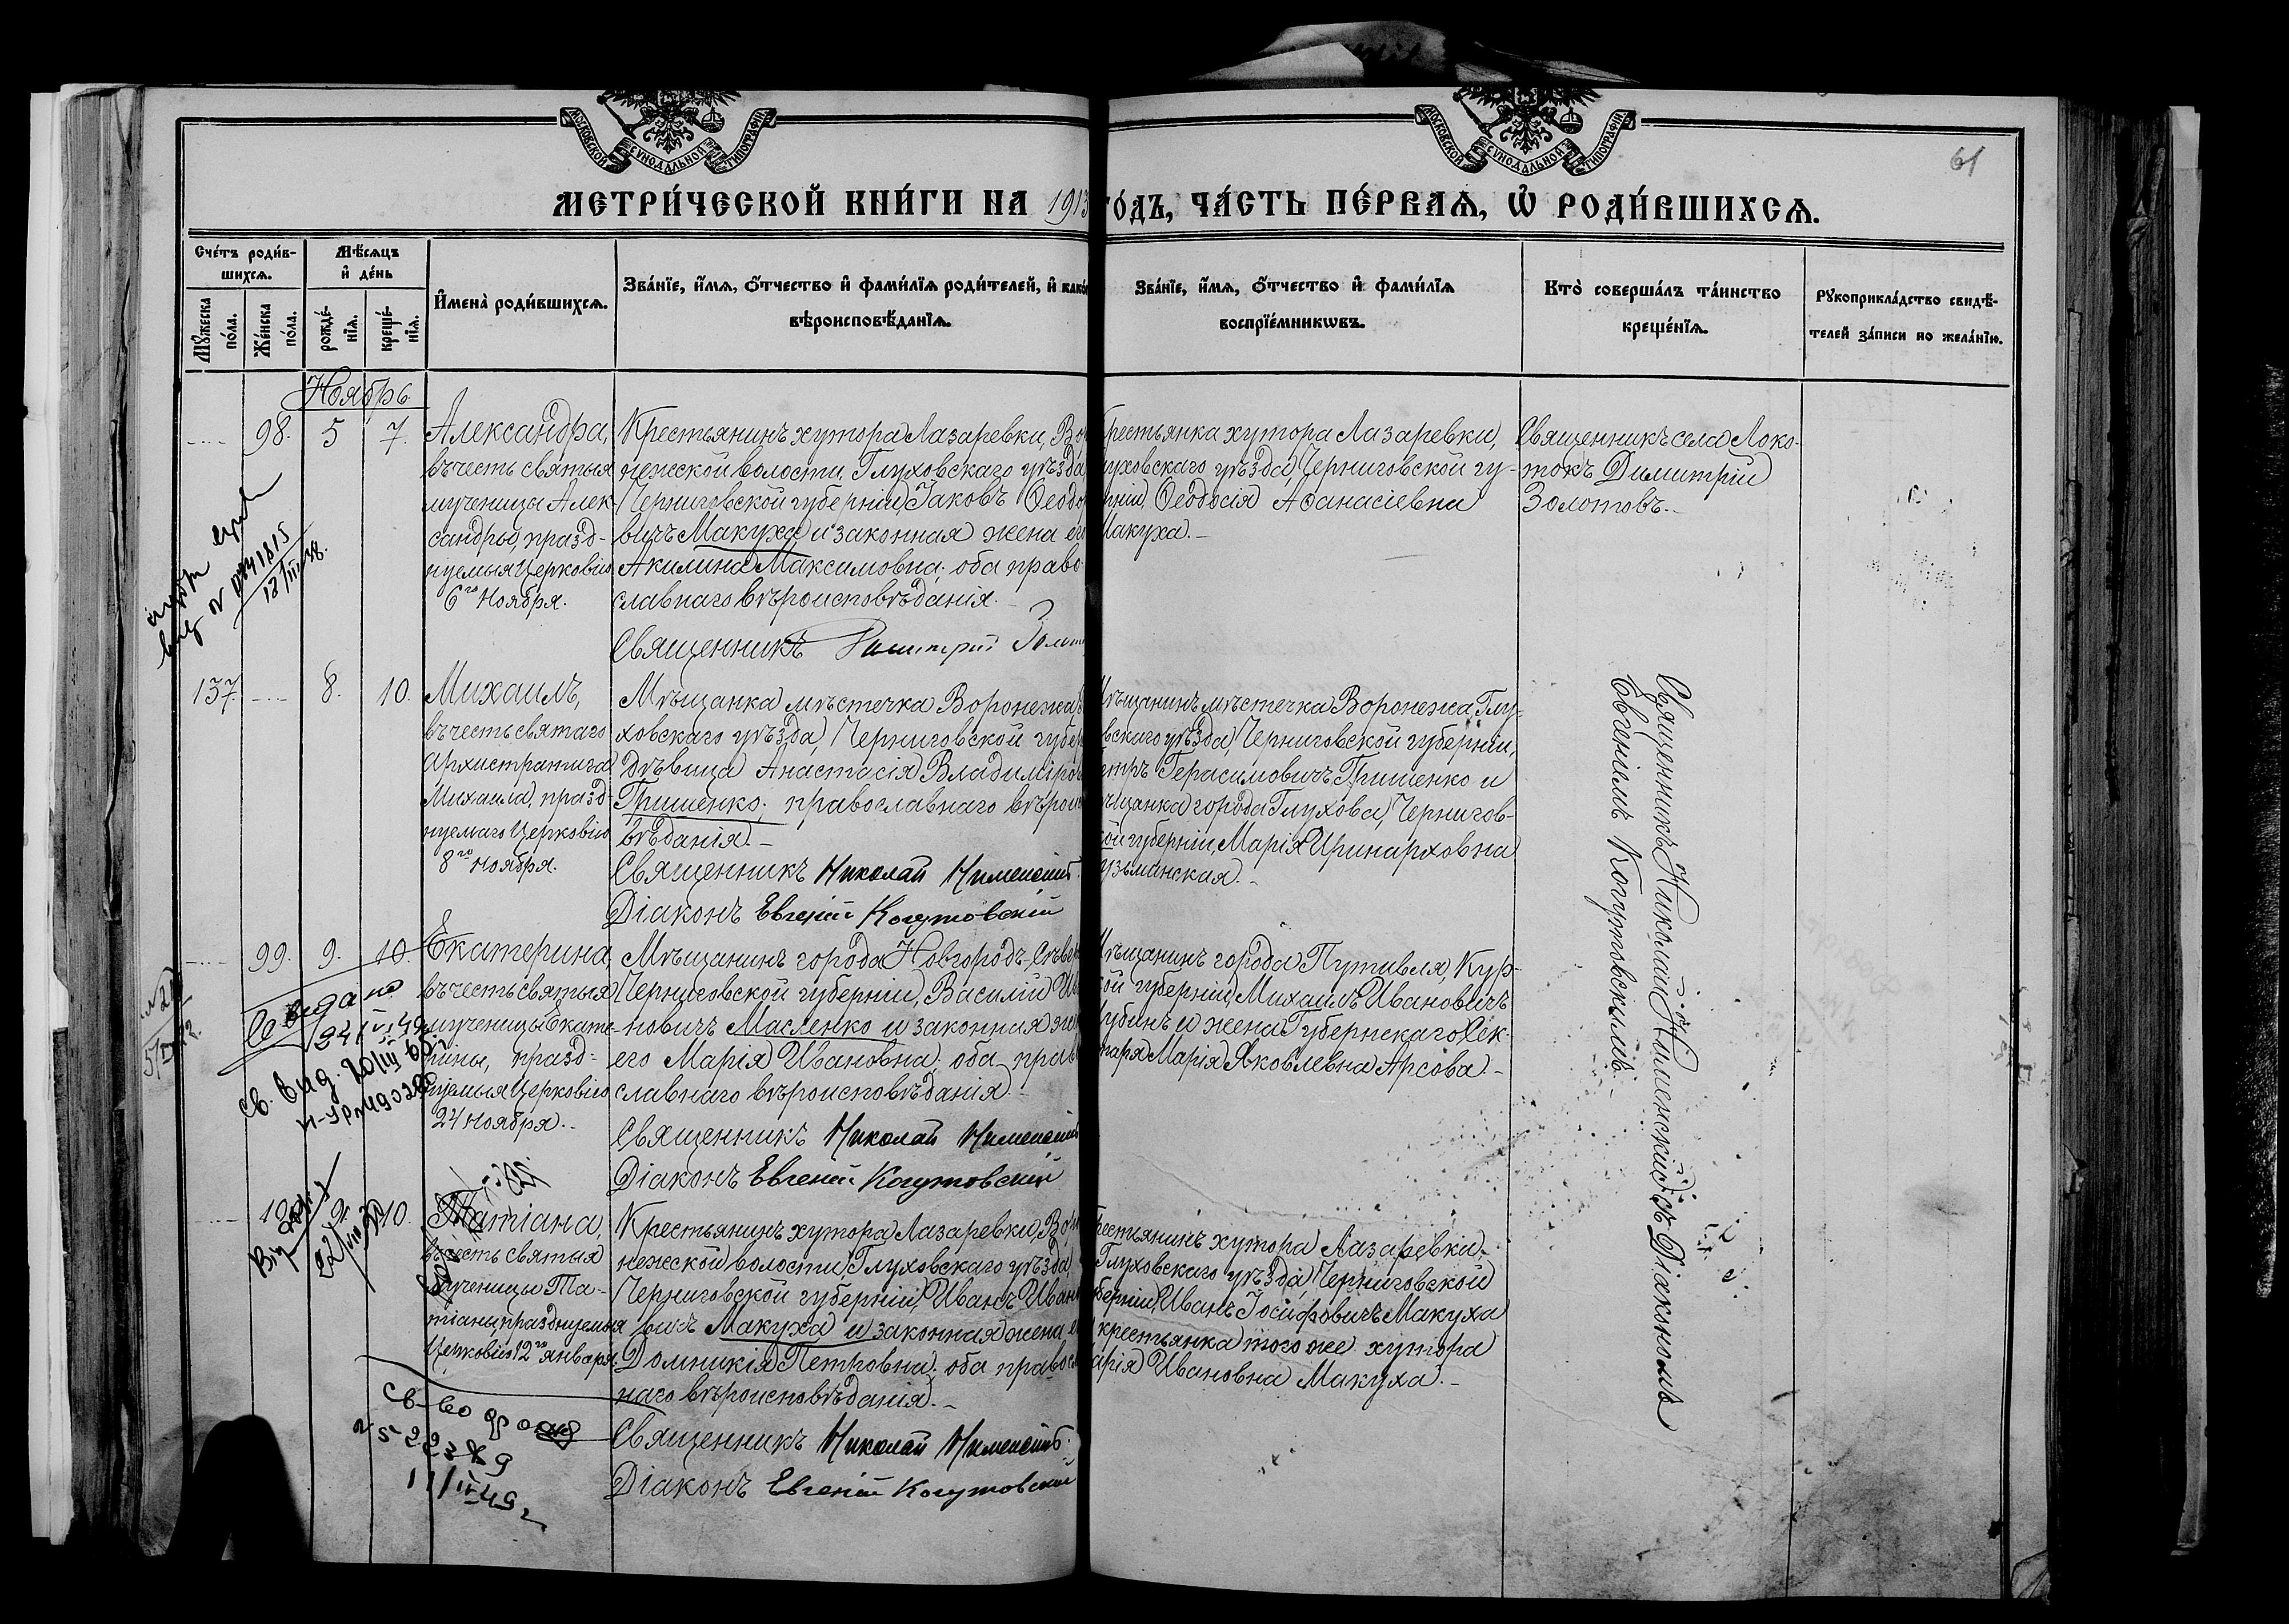 МОСКОВСКОЙ СѴНОДАЛЬНОЙ ТИПОГРАФІИ
МОСКОВСКОЙ СѴНОДАЛЬНОЙ ТИПОГРАФІИ
61
МЕТРИ́ЧЕСКОЙ КНИ́ГИ НА 1913 ГО́ДЪ, ЧА́СТЬ ПЕ́РВАѦ, Ѡ҆ РОДИ́ВШИХСѦ.
Сче́тъ роди́в-
шихсѧ.
Мѣ́сѧцъ
и҆ де́нь
Мꙋ́жеска по́ла.
Же́нска по́ла.
рожде́-
нїѧ.
креще́-
нїѧ.
И҆мена̀ роди́вшихсѧ.
Зва́нїе, и҆́мѧ, ѻ҆́тчество и҆ фами́лїѧ роди́телей, и҆ како́
вѣроисповѣ́данїѧ.
Зва́нїе, и҆́мѧ, ѻ҆́тчество и҆ фами́лїѧ
воспрїе́мникѡвъ.
Кто̀ соверша́лъ та́инство
креще́нїѧ.
Рꙋкоприкла́дство свидѣ́-
телей за́писи по жела́нїю.
Ноябрь
98. 5 7.
Александра,
въ честь святыя
мученицы Алек-
сандры, празд-
нуемыя Церковію
6го Ноября.
Крестьянинъ хутора Лазаревки, Во
нежской волости, Глуховскаго уѣзда,
Черниговской губерніи, Іаковъ Ѳеодо
вичъ Макуха и законная жена ег
Акилина Максимовна; оба право-
славнаго вѣроисповѣданія.
Священникъ Димитрій Золот
рестьянка хутора Лазаревки,
луховскаго уѣзда, Черниговской гу-
рніи, Ѳеодосія Аѳанасіевна
Макуха.
Священникъ села Локо-
токъ Димитрій
Золотовъ.
18/III 38.
137. 8. 10.
Михаилъ,
въ честь святаго
Архистратига
Михаила, празд-
нуемаго Церковію
8го Ноября.
Мѣщанка мѣстечка Воронежа,
ховскаго уѣзда, Черниговской губер
дѣвица Анастасія Владиміров
Гришенко; православнаго вѣроис
вѣданія.
Священникъ Николай Нименскій.
Діаконъ Евгеній Когутовскій
Мѣщанинъ мѣстечка Воронежа, Глу-
вскаго уѣзда, Черниговской губерніи,
етръ Герасимовичъ Гришенко и
ѣщанка города Глухова, Чернигов-
кой губерніи, Марія Иринарховна
узьминская.
Священникъ Николай Нименскій съ Діакономъ
Евгеніемъ Когутовскимъ.
99. 9. 10.
Екатерина,
въ честь святыя
мученицы Екате-
рины, празд-
нуемыя Церковію
24 Ноября.
Мѣщанинъ города Новгородъ-Сѣвер
Черниговской губерніи, Василій Ив
новичъ Масленко и законная же
его Марія Ивановна; оба прав
славнаго вѣроисповѣданія.
Священникъ Николай Нименскій
Діаконъ Евгеній Когутовскій
Мѣщанинъ города Путивля, Кур-
кой губерніи, Михаилъ Ивановичъ
убинъ и жена Губернскаго Сек-
таря Марія Яковлевна Арсова.
10.
Татіана,
въ честь святыя
мученицы Та-
тіаны, празднуемыя
Церковію 12го января.
Крестьянинъ хутора Лазаревки, Воро
нежской волости, Глуховскаго уѣзда,
Черниговской губерніи, Иванъ Иван
вичъ Макуха и законная жена е
Домникія Петровна; оба правосл
наго вѣроисповѣданія.
Священникъ Николай Нименскій.
Діаконъ Евгеній Когутовскій
рестьянинъ хутора Лазаревки,
Глуховскаго уѣзда, Черниговской
берніи, Иванъ Іосифовичъ Макуха
крестьянка того же хутора
арія Ивановна Макуха.